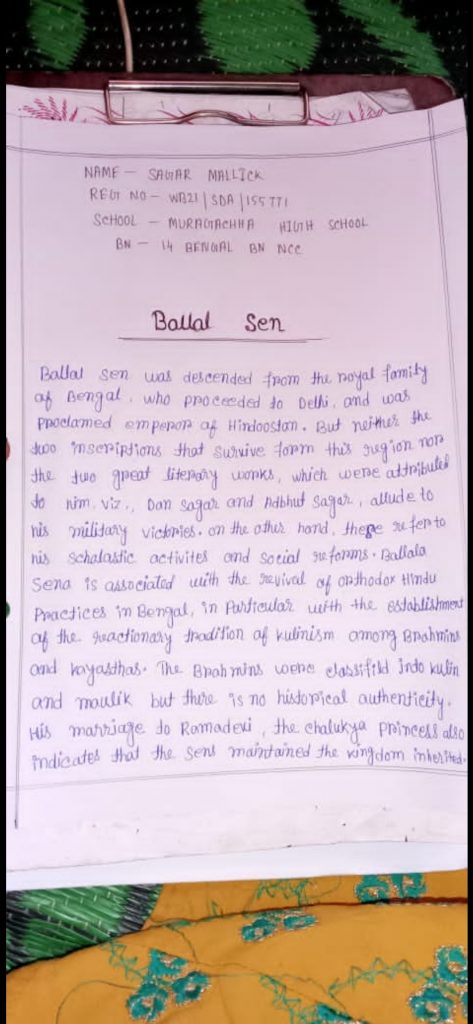 NAME - SAGAR MALLICK
REGT NO - WB21/SDA/155771
SCHOOL - MURAGACHHA HIGH SCHOOL
BN - 14 BENGAL BN NCC
Ballal Sen
Ballal Sen was descended from the royal family
of Bengal, who proceeded to Delhi, and was
Proclaimed emperor of Hindoostan. But neither the
two inscriptions that survive form this region nor
the two great literary works, which were attributed
to him, viz., Dan Sagar and Adbhut Sagar, allude to
his military victories. on the other hand, these refer to
his scholastic activites and social reforms. Ballala
Sena is associated with the revival of orthodox Hindu
Practices in Bengal, in Particular with the establishment
of the reactionary tradition of kulinism among Brahmins
and kayasthas. The Brahmins were classifild into kulin
and maulik but there is no historical authenticity.
His marriage to Ramadevi, the chalukya princess also
indicates that the Sens maintained the kingdom inherited.